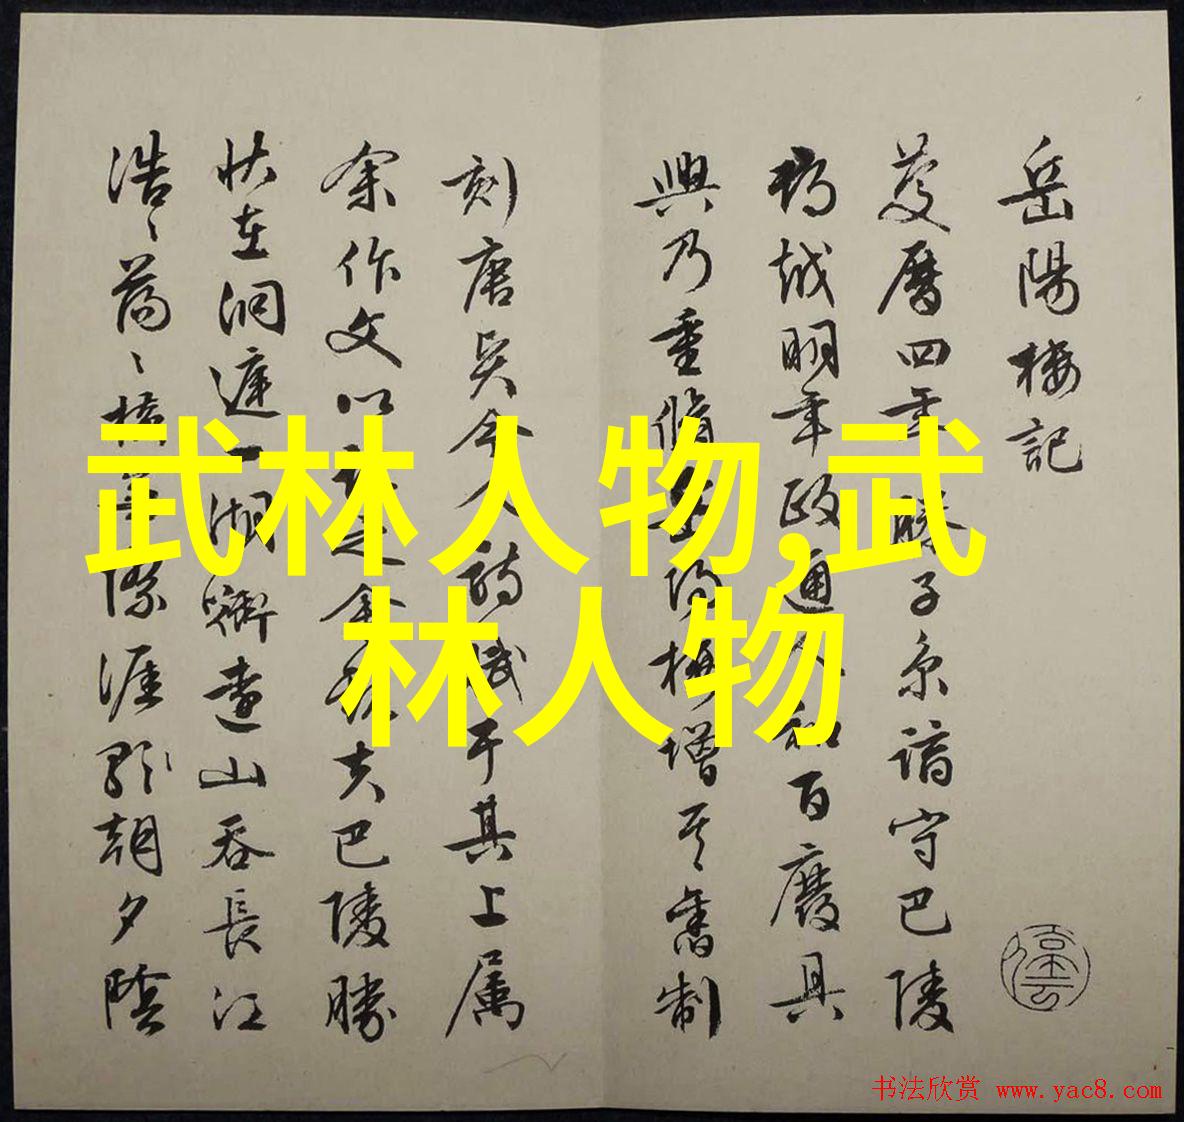 岳陽樓記
慶曆四年滕子京謫守巴陵
郡越明年政通人和百廢具
興乃重脩岳陽樓增其舊制
刻唐賢今人詩賦于其上屬
余作文以記之余觀夫巴陵勝
狀在洞庭一湖銜遠山吞長江
浩〻蕩〻橫無際涯朝夕陰
武林人物,武
林人物
书法欣赏 www.yac8.com